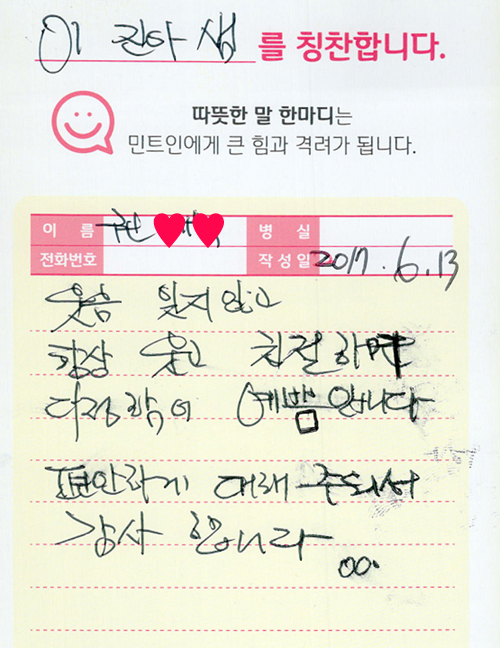 이 진아 샘 를 칭찬합니다.
따뜻한 말 한마디는
민트인에게 큰 힘과 격려가 됩니다.
이 름 권 병 실
전화번호 작성일 2017.6.13
웃음 잊지않고
항상 웃고 친절하며
다정함이 예쁨입니다
편안하게 대해 주셔서
감사 합니다